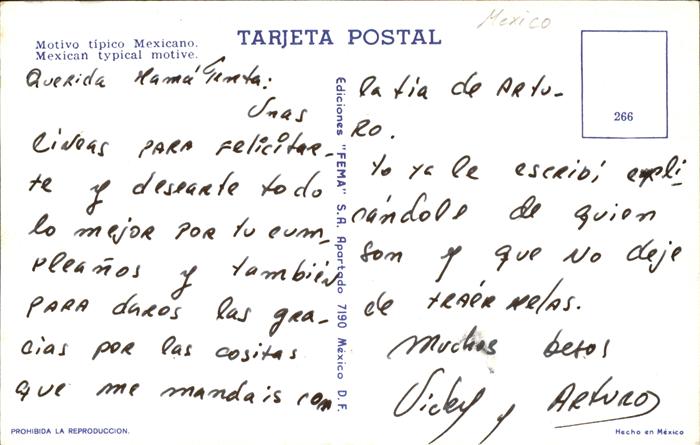 Mexico
TARJETA POSTAL
Motivo típico Mexicano.
Mexican typical motive.
266
Querida Mamá Tenta:
Unas
líneas para felicitar-
te y desearte todo
lo mejor por tu cum-
pleaños y también
para daros las gra-
cias por las cositas
que me mandais con
Ediciones "FEMA" S.A. Apartado 7190 México D.F.
la tía de Artu-
ro.
Yo ya le escribí expli-
cándole de quien
son y que no deje
de traérmelas.
Muchos besos
Vicky y Arturo
PROHIBIDA LA REPRODUCCION.
Hecho en México